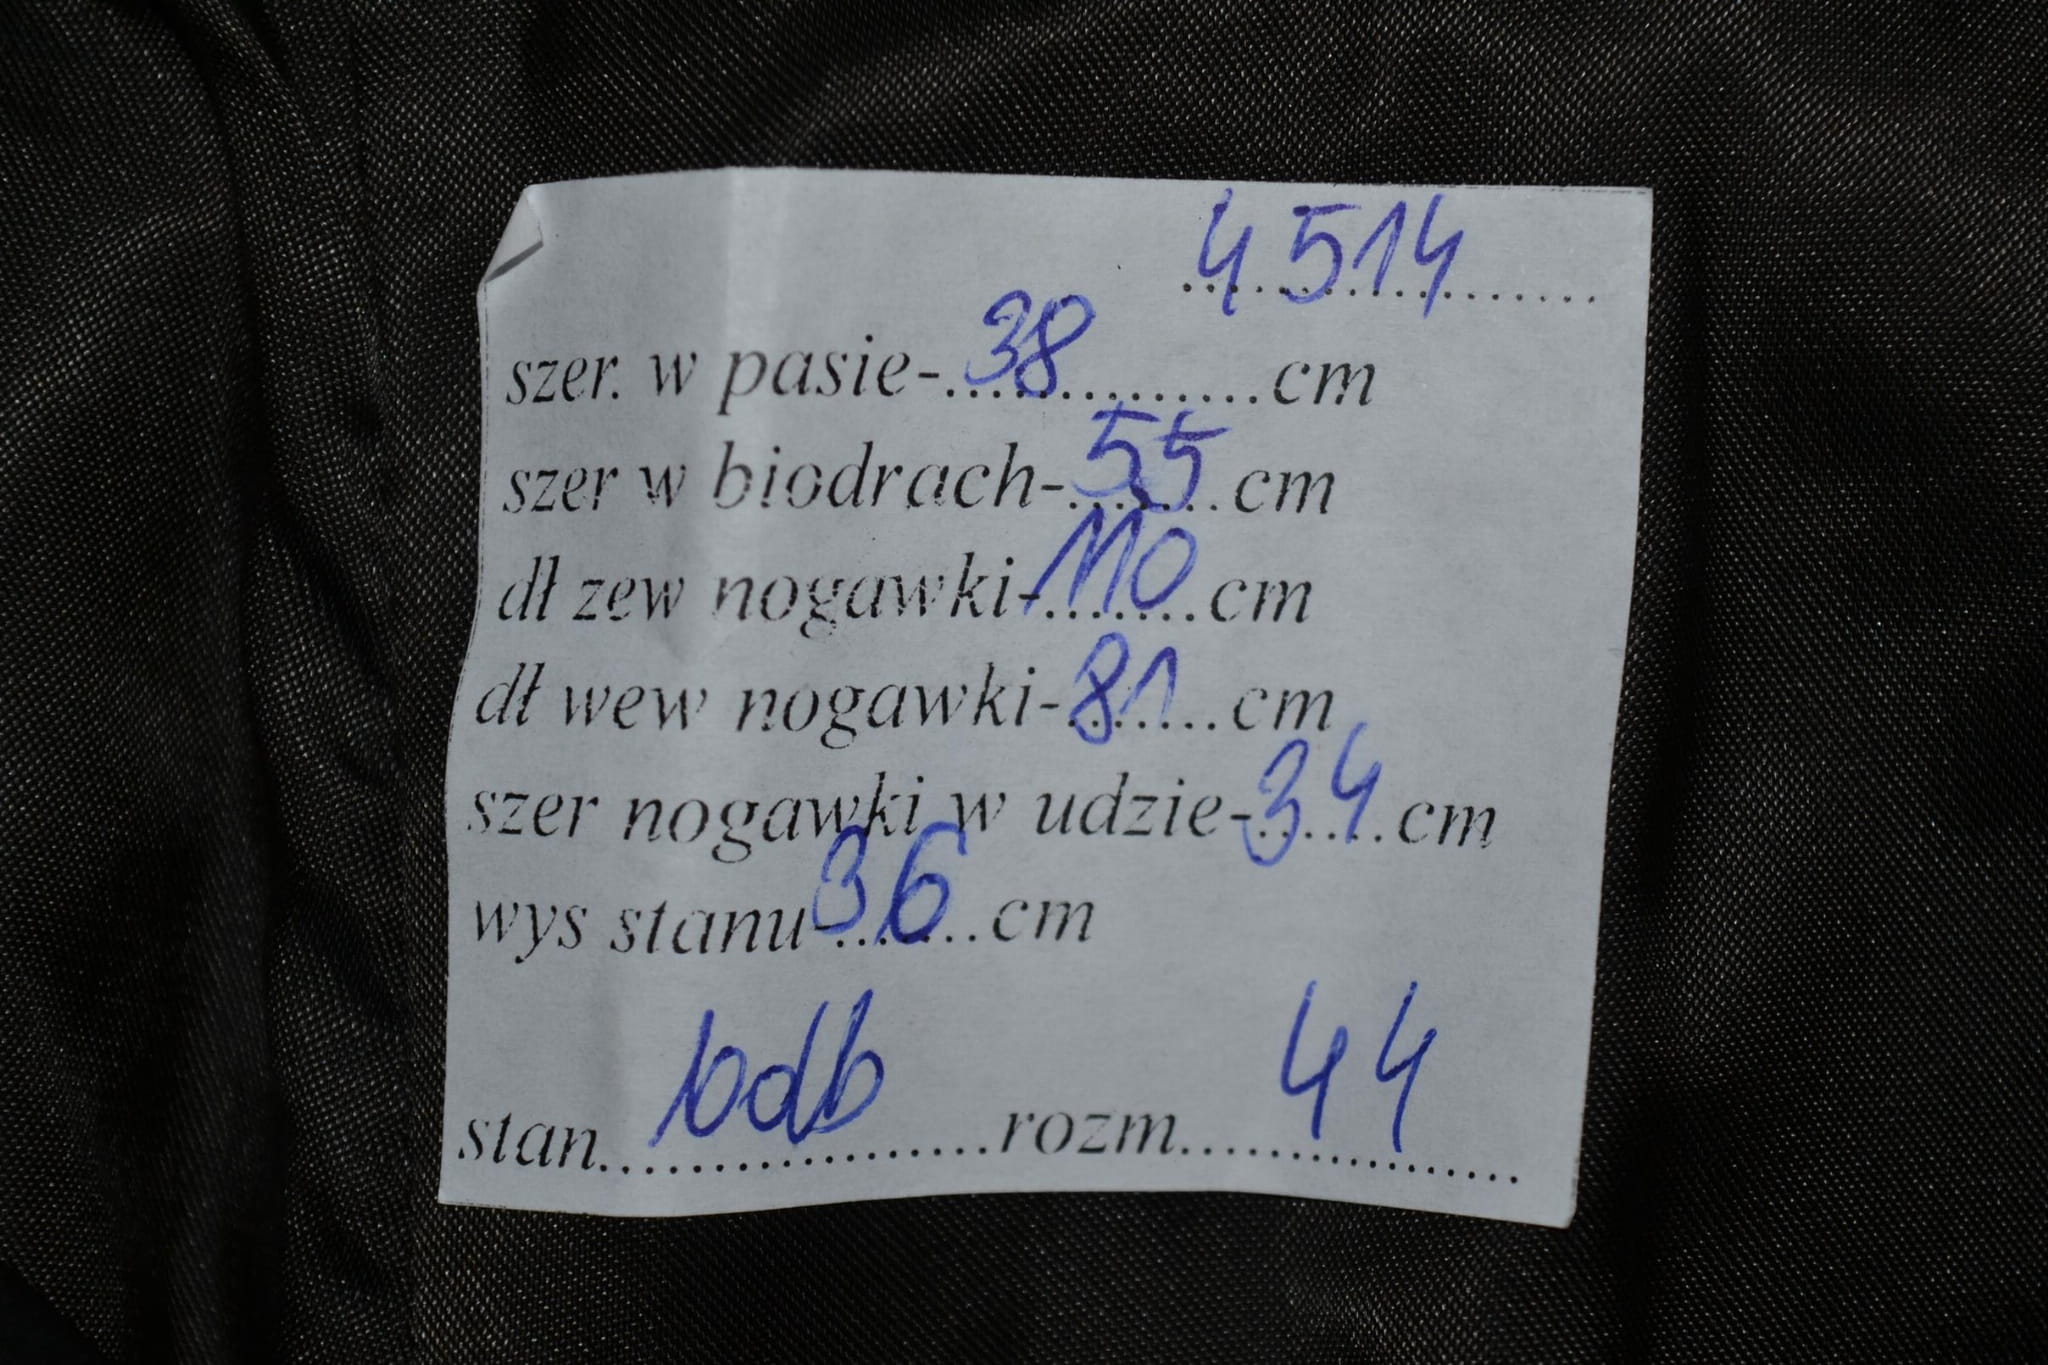 4514
szer. w pasie-38cm
szer w biodrach-55cm
dł zew nogawki-110cm
dł wew nogawki-81cm
szer nogawki w udzie-34cm
wys stanu-36cm
stan bdb rozm. 44